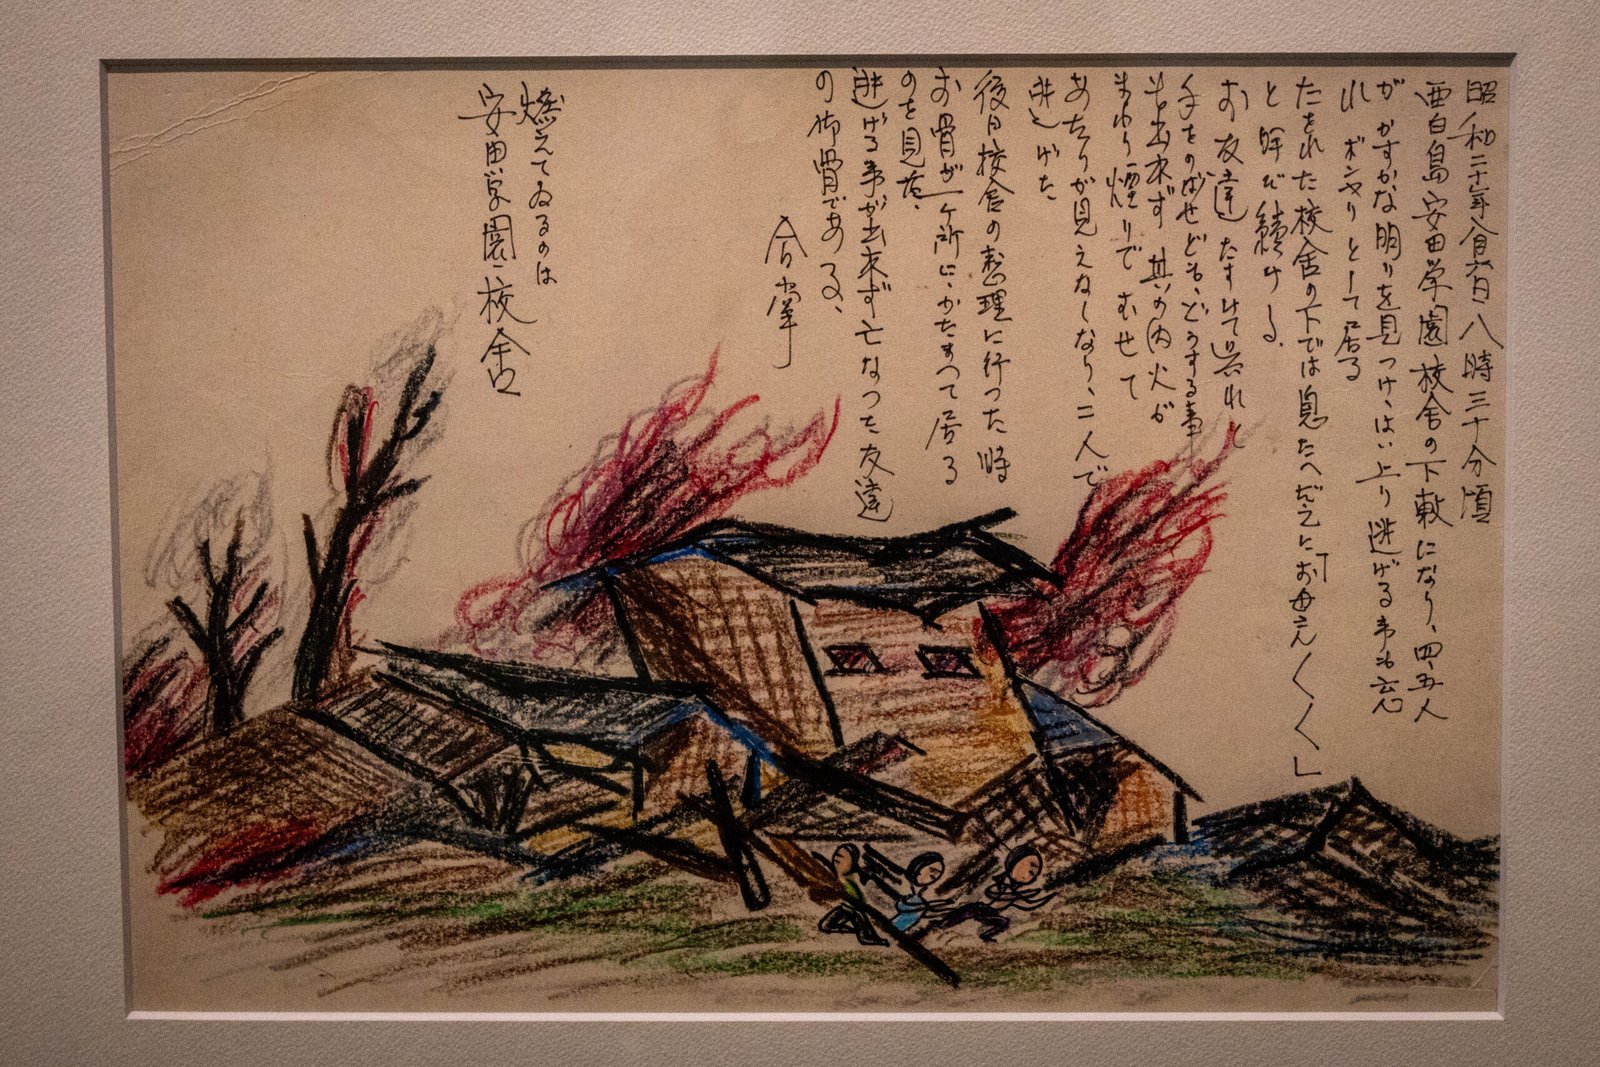 昭和二十年八月六日八時三十分頃
西白島安田学園校舎の下敷になり、四、五人
がかすかな明りを見つけ、はい上り逃げる事も忘
れボンヤリとして居る
たをれた校舎の下では息たへだえに「お母さんくく」
と呼び続ける、
お友達たすけて呉れと
手をのばせども、どうする事
も出来ず其の内火が
まわり煙りでむせて
あたりが見えなくなり、二人で
逃げた
後日校舎の整理に行つた時
お骨が一ヶ所にかたまつて居る
のを見た、
逃げる事が出来ず亡なつた友達
の御骨である、
合掌
燃えてゐるのは
安田学園校舎